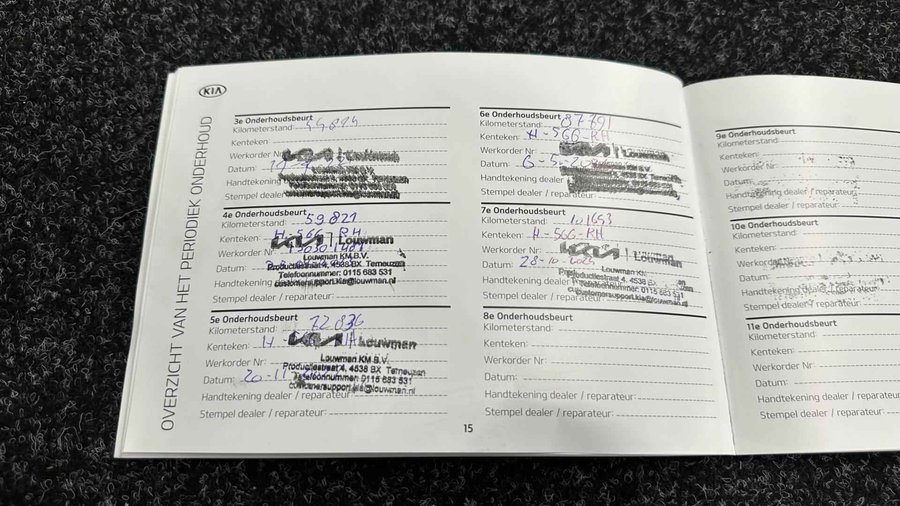 KIA
OVERZICHT VAN HET PERIODIEK ONDERHOUD
3e Onderhoudsbeurt
Kilometerstand:
Kenteken:
Werkorder Nr: KIA Louwman
Datum:
Handtekening
Stempel dealer
4e Onderhoudsbeurt
Kilometerstand: 59.821
Kenteken: H-566-RH
Werkorder Nr: KIA Louwman
Louwman KM B.V.
Datum: Productiestraat 4, 4538 BX Terneuzen
Telefoonnummer: 0115 683 531
Handtekening customersupport.kia@louwman.nl
Stempel dealer / reparateur:
5e Onderhoudsbeurt
Kilometerstand: 72.836
Kenteken: H- KIA Louwman
Werkorder Nr: Louwman KM B.V.
Productiestraat 4, 4538 BX Terneuzen
Datum: 20-11 Telefoonnummer: 0115 683 531
customersupport.kia@louwman.nl
Handtekening dealer / reparateur:
Stempel dealer / reparateur:
15
6e Onderhoudsbeurt
Kilometerstand: 87791
Kenteken: H-566-RH
Werkorder Nr: KIA Louwman
Datum: 6-5-20
Handtekening
Stempel dealer
7e Onderhoudsbeurt
Kilometerstand: 101653
Kenteken: H-566-RH
Werkorder Nr: KIA Louwman
Datum: 28-10- Louwman KM
Productiestraat 4, 4538 BX Terneuzen
Handtekening dealer Telefoonnummer: 0115 683 531
customersupport.kia@louwman.nl
Stempel dealer / reparateur:
8e Onderhoudsbeurt
Kilometerstand:
Kenteken:
Werkorder Nr:
Datum:
Handtekening dealer / reparateur:
Stempel dealer / reparateur:
9e Onderhoudsbeurt
Kilometerstand:
Kenteken:
Werkorder Nr:
Datum:
Handtekening dealer / reparateur:
Stempel dealer / reparateur:
10e Onderhoudsbeurt
Kilometerstand:
Kenteken:
Werkorder Nr:
Datum:
Handtekening dealer / reparateur:
Stempel dealer / reparateur:
11e Onderhoudsbeurt
Kilometerstand:
Kenteken:
Werkorder Nr:
Datum:
Handtekening dealer / reparateur:
Stempel dealer / reparateur: